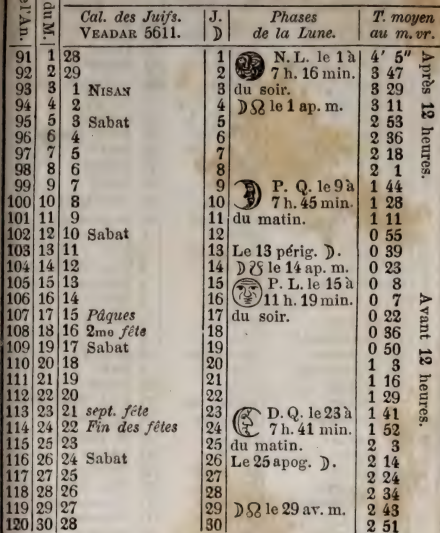 de l'An. | du M. | Cal. des Juifs. VEADAR 5611. | J. ☽ | Phases de la Lune. | T. moyen au m. vr.
91 1 28 | 1 | N. L. le 1 à | 4' 5"
92 2 29 | 2 | 7 h. 16 min. | 3 47
93 3 1 NISAN | 3 | du soir. | 3 29
94 4 2 | 4 | ☽☊ le 1 ap. m. | 3 11
95 5 3 Sabat | 5 | 2 53
96 6 4 | 6 | 2 36
97 7 5 | 7 | 2 18
98 8 6 | 8 | 2 1
99 9 7 | 9 | P. Q. le 9 à | 1 44
100 10 8 | 10 | 7 h. 45 min. | 1 28
101 11 9 | 11 | du matin. | 1 11
102 12 10 Sabat | 12 | 0 55
103 13 11 | 13 | Le 13 périg. ☽. | 0 39
104 14 12 | 14 | ☽☋ le 14 ap. m. | 0 23
105 15 13 | 15 | P. L. le 15 à | 0 8
106 16 14 | 16 | 11 h. 19 min. | 0 7
107 17 15 Pâques | 17 | du soir. | 0 22
108 18 16 2me fête | 18 | 0 36
109 19 17 Sabat | 19 | 0 50
110 20 18 | 20 | 1 3
111 21 19 | 21 | 1 16
112 22 20 | 22 | 1 29
113 23 21 sept. fête | 23 | D. Q. le 23 à | 1 41
114 24 22 Fin des fêtes | 24 | 7 h. 41 min. | 1 52
115 25 23 | 25 | du matin. | 2 3
116 26 24 Sabat | 26 | Le 25 apog. ☽. | 2 14
117 27 25 | 27 | 2 24
118 28 26 | 28 | 2 34
119 29 27 | 29 | ☽☊ le 29 av. m. | 2 43
120 30 28 | 30 | 2 51
Après 12 heures.
Avant 12 heures.